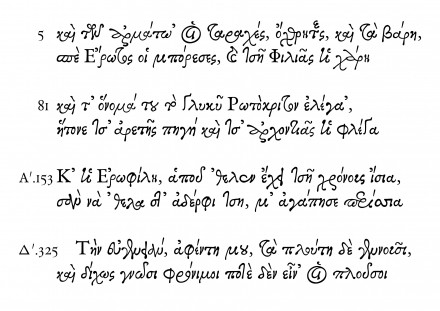 5 καὶ τῶν ἀρμάτω' οἱ ταραχές, ὄχθρητες, καὶ τὰ βάρη,
Ἔρωτος οἱ μπόρεσες, καὶ τσῆ Φιλιᾶς ἡ χάρη
81 καὶ τ' ὄνομά του τὸ Γλυκὺ Ρωτόκριτον ἐλέγα',
ἤτονε τσ' ἀρετῆς πηγὴ καὶ τσ' ἀρχοντιᾶς ἡ φλέγα
Α΄.153 Κ' ἡ Ἐρωφίλη, ἀποὺ 'θελεν ἔχει τσῆ χρόνους ἴσια,
σὰν νὰ 'θελα ἀδέρφι τση, μ' ἀγάπησε περίσσια
Δ΄.325 Τὴν εὐγενειάν, ἀφέντη μου, τὰ πλούτη δὲ γεννοῦσι,
καὶ δίχως γνῶσι φρόνιμοι ποτὲ δὲν εἶν' οἱ πλοῦσοι